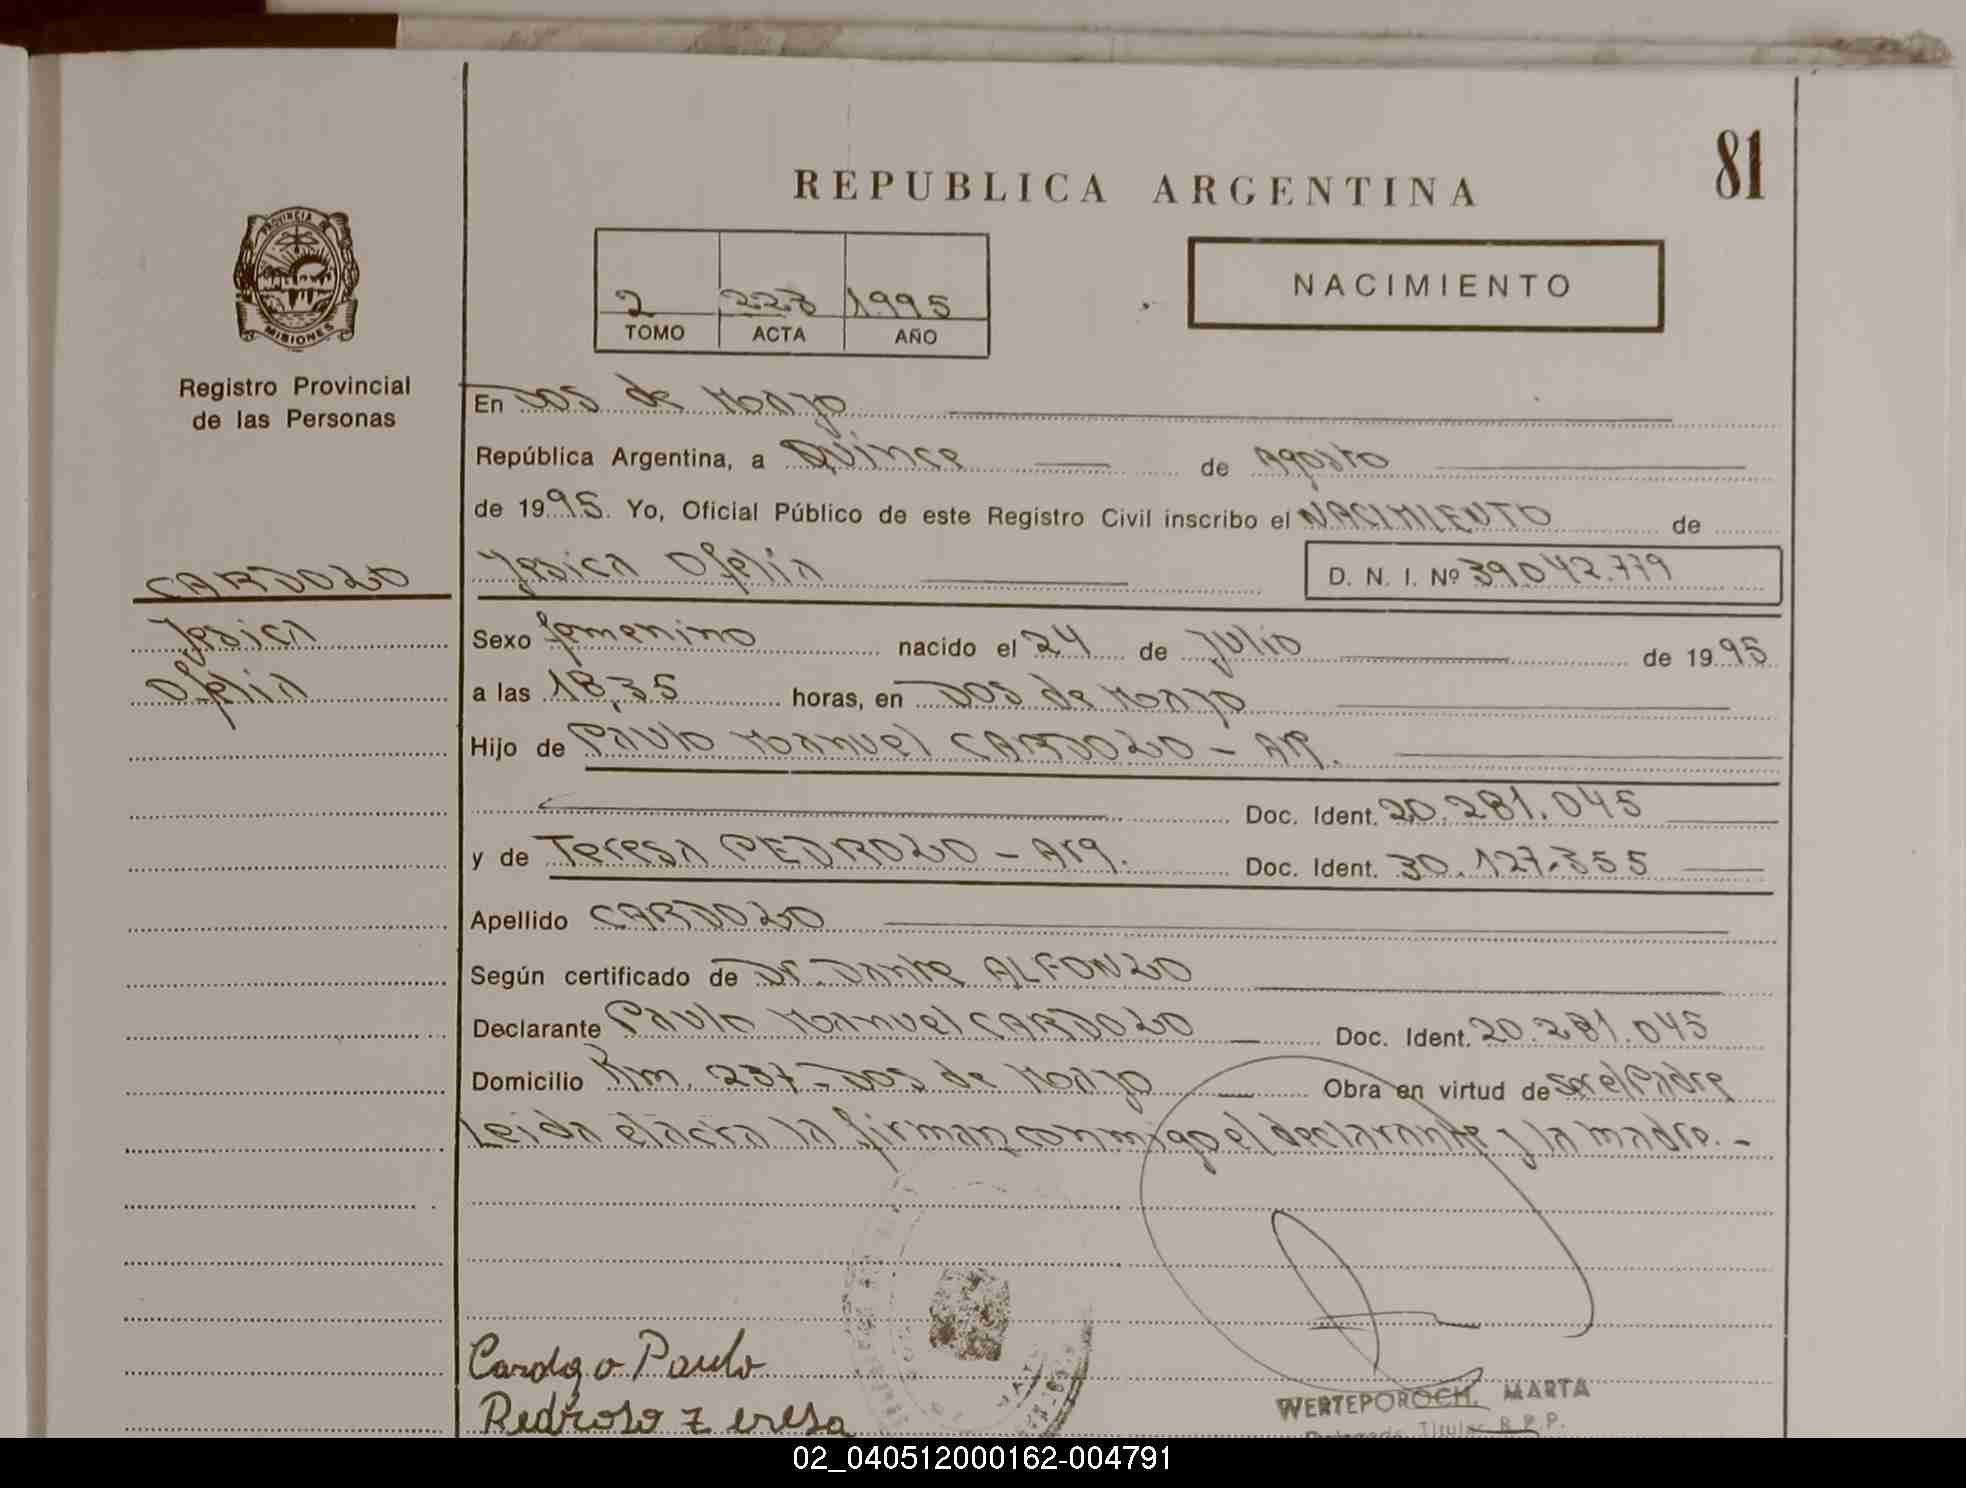 81
REPUBLICA ARGENTINA
PROVINCIA DE
MISIONES
Registro Provincial
de las Personas
2 223 1995
TOMO ACTA AÑO
NACIMIENTO
En Dos de Mayo
República Argentina, a Quince de Agosto
de 1995. Yo, Oficial Público de este Registro Civil inscribo el NACIMIENTO de
Jesica Ofelia D. N. I. Nº 39.042.779
CARDOZO
Jesica
Ofelia
Sexo femenino nacido el 24 de Julio de 1995
a las 18,35 horas, en Dos de Mayo
Hijo de Paulo Manuel CARDOZO - Arg.
Doc. Ident. 20.281.045
y de Teresa PEDROZO - Arg. Doc. Ident. 30.127.355
Apellido CARDOZO
Según certificado de Dr. Dante ALFONZO
Declarante Paulo Manuel CARDOZO Doc. Ident. 20.281.045
Domicilio Km. 237 - Dos de Mayo Obra en virtud de ser el Padre
Leida el acta la firman conmigo el declarante y la madre. -
Cardozo Paulo
Pedrozo Teresa
WERTEPOROCH, MARTA
Titular R.P.P.
02_040512000162-004791